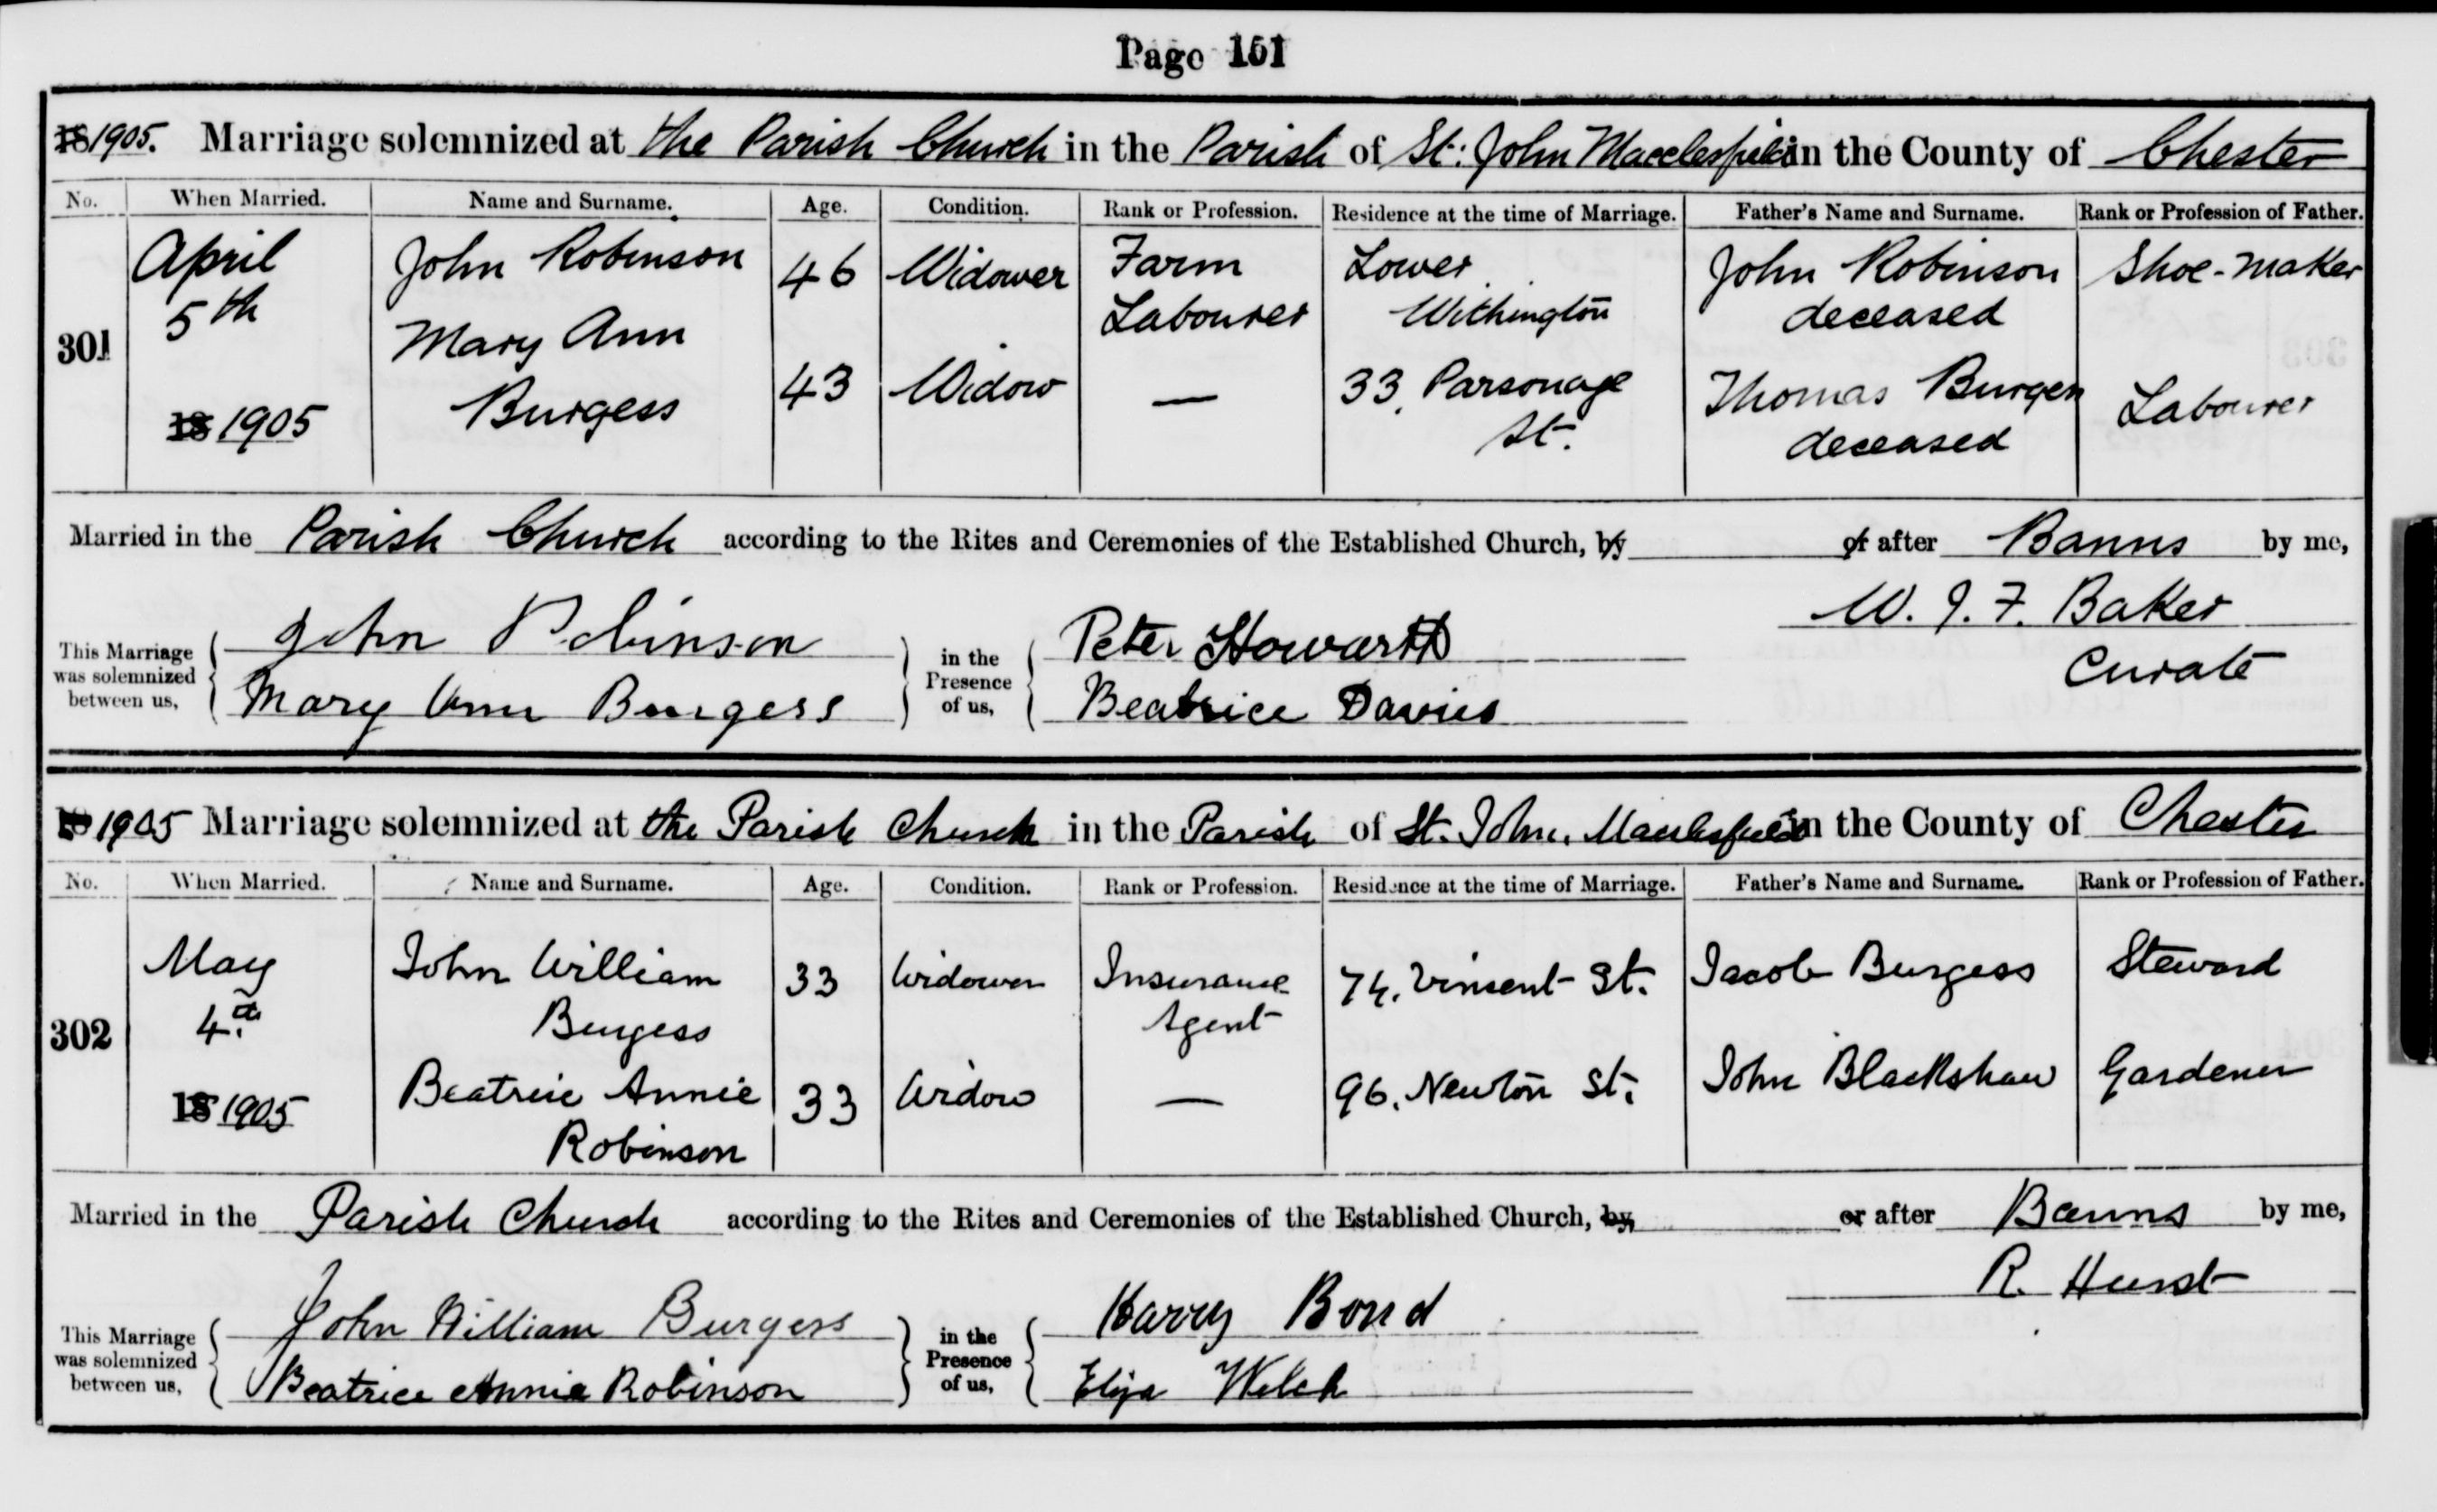 Page 151
18 1905. Marriage solemnized at the Parish Church in the Parish of St: John Macclesfield in the County of Chester
No. When Married. Name and Surname. Age. Condition. Rank or Profession. Residence at the time of Marriage. Father's Name and Surname. Rank or Profession of Father.
301 April 5th 18 1905
John Robinson 46 Widower Farm Labourer Lower Withington John Robinson deceased Shoe-maker
Mary Ann Burgess 43 Widow — 33, Parsonage St. Thomas Burgess deceased Labourer
Married in the Parish Church according to the Rites and Ceremonies of the Established Church, by or after Banns by me,
W. J. F. Baker
Curate
This Marriage was solemnized between us, John Robinson in the Presence of us, Peter Howarth
Mary Ann Burgess Beatrice Davies
18 1905 Marriage solemnized at the Parish Church in the Parish of St. John, Macclesfield in the County of Chester
No. When Married. Name and Surname. Age. Condition. Rank or Profession. Residence at the time of Marriage. Father's Name and Surname. Rank or Profession of Father.
302 May 4th 18 1905
John William Burgess 33 Widower Insurance Agent 74, Vincent St. Jacob Burgess Steward
Beatrice Annie Robinson 33 Widow — 96, Newton St. John Blackshaw Gardener
Married in the Parish Church according to the Rites and Ceremonies of the Established Church, by or after Banns by me,
R. Hurst
This Marriage was solemnized between us, John William Burgess in the Presence of us, Harry Bond
Beatrice Annie Robinson Eliza Welch